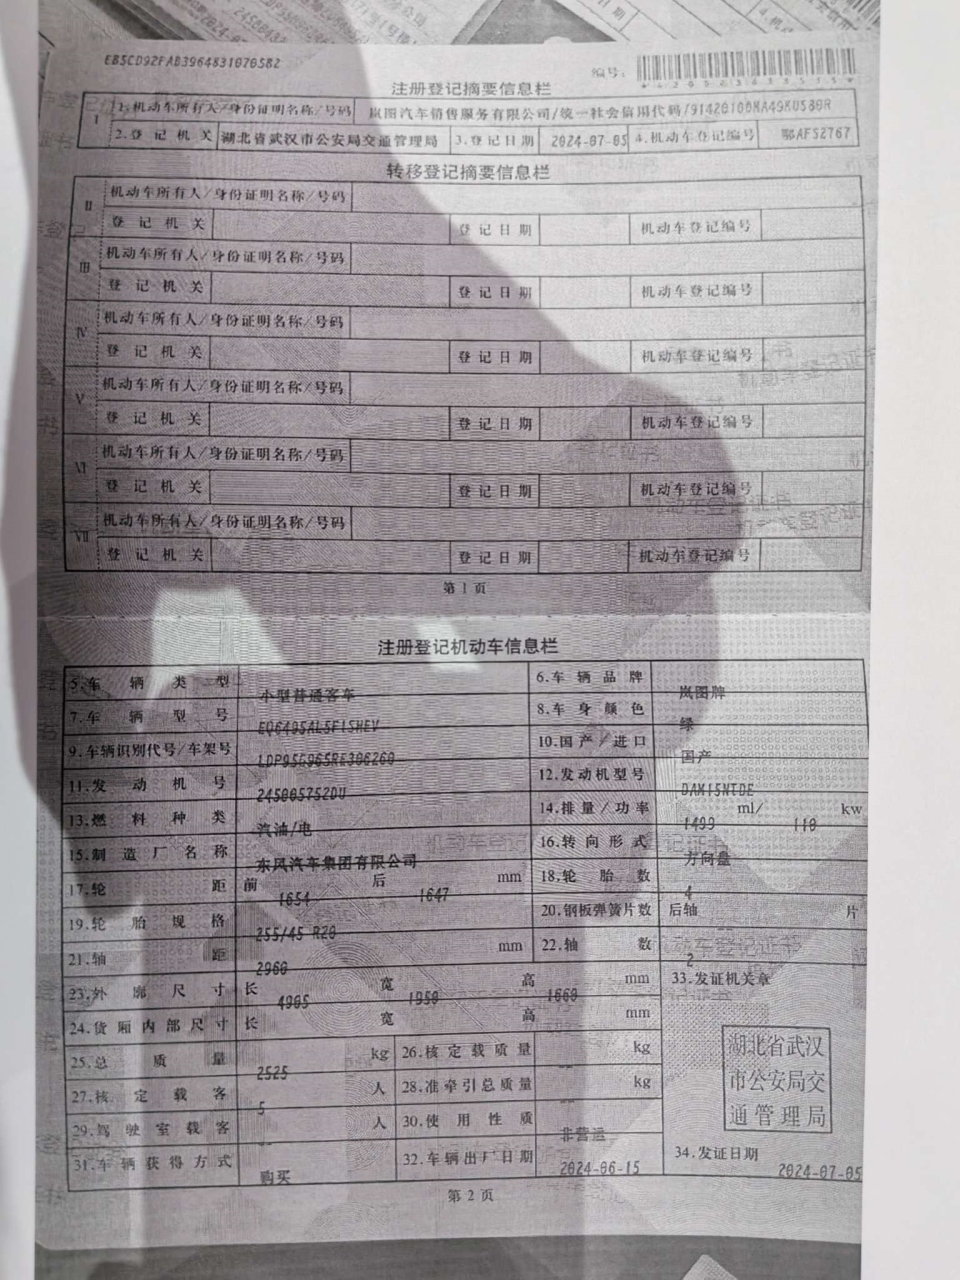 EB5CD92FAB3964831070582
编号:
注册登记摘要信息栏
I 1.机动车所有人/身份证明名称/号码 岚图汽车销售服务有限公司/统一社会信用代码/91420100MA49KU580R
2.登记机关 湖北省武汉市公安局交通管理局 3.登记日期 2024-07-05 4.机动车登记编号 鄂AFS2767
转移登记摘要信息栏
II 机动车所有人/身份证明名称/号码
登记机关 登记日期 机动车登记编号
III 机动车所有人/身份证明名称/号码
登记机关 登记日期 机动车登记编号
IV 机动车所有人/身份证明名称/号码
登记机关 登记日期 机动车登记编号
V 机动车所有人/身份证明名称/号码
登记机关 登记日期 机动车登记编号
VI 机动车所有人/身份证明名称/号码
登记机关 登记日期 机动车登记编号
VII 机动车所有人/身份证明名称/号码
登记机关 登记日期 机动车登记编号
第1页
注册登记机动车信息栏
5.车辆类型 小型普通客车 6.车辆品牌 岚图牌
7.车辆型号 EQ6495AL5F1SHEV 8.车身颜色 绿
9.车辆识别代号/车架号 LDP95G965RE306260 10.国产/进口 国产
11.发动机号 2450057520U 12.发动机型号 DAM15NTDE
13.燃料种类 汽油/电 14.排量/功率 1499 ml/ 110 kw
15.制造厂名称 东风汽车集团有限公司 16.转向形式 方向盘
17.轮距 前 1654 后 1647 mm 18.轮胎数 4
19.轮胎规格 255/45 R20 20.钢板弹簧片数 后轴 -- 片
21.轴距 2960 mm 22.轴数 2
23.外廓尺寸 长 4905 宽 1950 高 1660 mm 33.发证机关章
24.货厢内部尺寸 长 宽 高 mm
25.总质量 2525 kg 26.核定载质量 -- kg
湖北省武汉
市公安局交
通管理局
27.核定载客 5 人 28.准牵引总质量 -- kg
29.驾驶室载客 -- 人 30.使用性质 非营运
31.车辆获得方式 购买 32.车辆出厂日期 2024-06-15 34.发证日期 2024-07-05
第2页